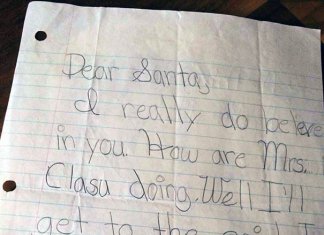 Dear Santa,
I really do beleve
in you. How are Mrs.
Clasu doing. Well I'll
get to the